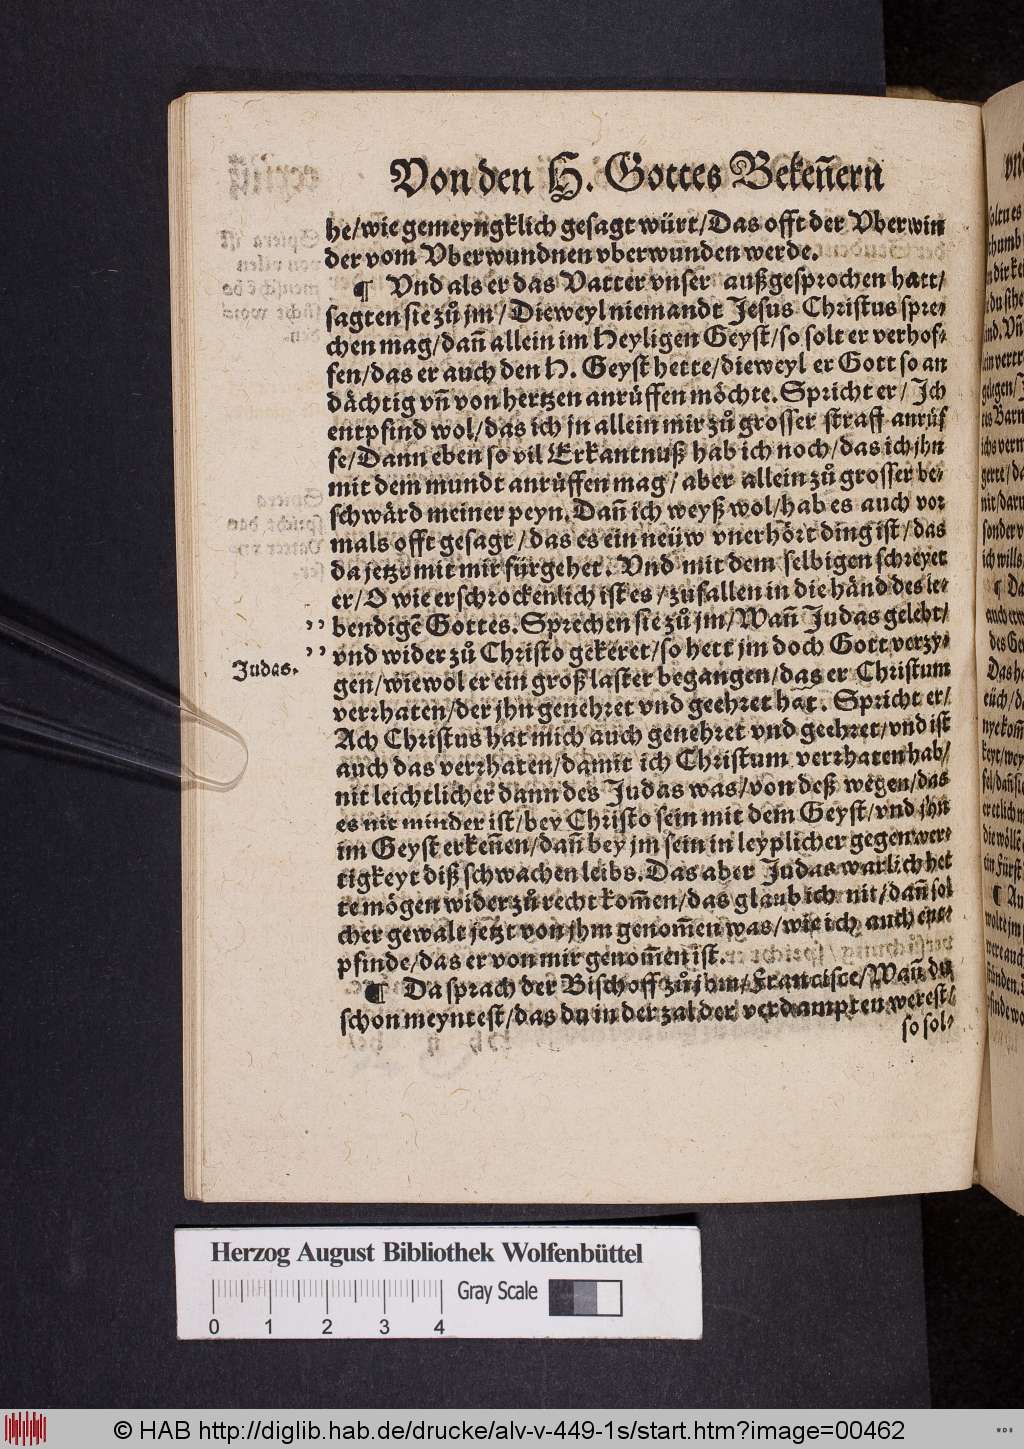 Von den H. Gottes Bekeñern
he/wie gemeyngklich gesagt würt/Das offt der Vberwin
der vom Vberwundnen vberwunden werde.
¶ Vnd als er das Vatter vnser außgesprochen hatt/
sagten sie zů jm/Dieweyl niemandt Jesus Christus spre⸗
chen mag/dañ allein im Heyligen Geyst/so solt er verhof⸗
fen/das er auch den H. Geyst hette/dieweyl er Gott so an
dächtig vñ von hertzen anrüffen möchte. Spricht er/ Ich
entpfind wol/das ich jn allein mir zů grosser straff anrüf
fe/Dann eben so vil Erkantnuß hab ich noch/das ich jhn
mit dem mundt anrüffen mag/ aber allein zů grosser be⸗
schwärd meiner peyn. Dañ ich weyß wol/hab es auch vor
mals offt gesagt/das es ein neüw vnerhört ding ist/das
da jetzt mit mir fürgehet. Vnd mit dem selbigen schreyet
er/O wie erschrockenlich ist es/zufallen in die händ des le⸗
’’ bendigē Gottes. Sprechen sie zů jm/Wañ Judas gelebt/
’’ vnd wider zů Christo gekeret/so hett jm doch Gott verzy⸗
Judas.
gen/wiewol er ein groß laster begangen/das er Christum
verrhaten/der jhn genehret vnd geehret hat. Spricht er/
Ach Christus hat mich auch genehret vnd geehret/vnd ist
auch das verrhaten/damit ich Christum verrhaten hab/
nit leichtlicher dann des Judas was/von deß wegen/das
es nit minder ist/bey Christo sein mit dem Geyst/vnd jhn
im Geyst erkeñen/dañ bey jm sein in leyplicher gegenwer⸗
tigkeyt diß schwachen leibs. Das aber Judas warlich het
te mögen wider zů recht kom̃en/das glaub ich nit/dañ sol
cher gewalt jetzt von jhm genom̃en was/wie ich auch ent⸗
pfinde/das er von mir genom̃en ist.
¶ Da sprach der Bischoff zů jhm/Francisce/Wañ du
schon meyntest/das du in der zal der verdampten werest/
so sol⸗
Herzog August Bibliothek Wolfenbüttel
Gray Scale
0 1 2 3 4
© HAB http://diglib.hab.de/drucke/alv-v-449-1s/start.htm?image=00462